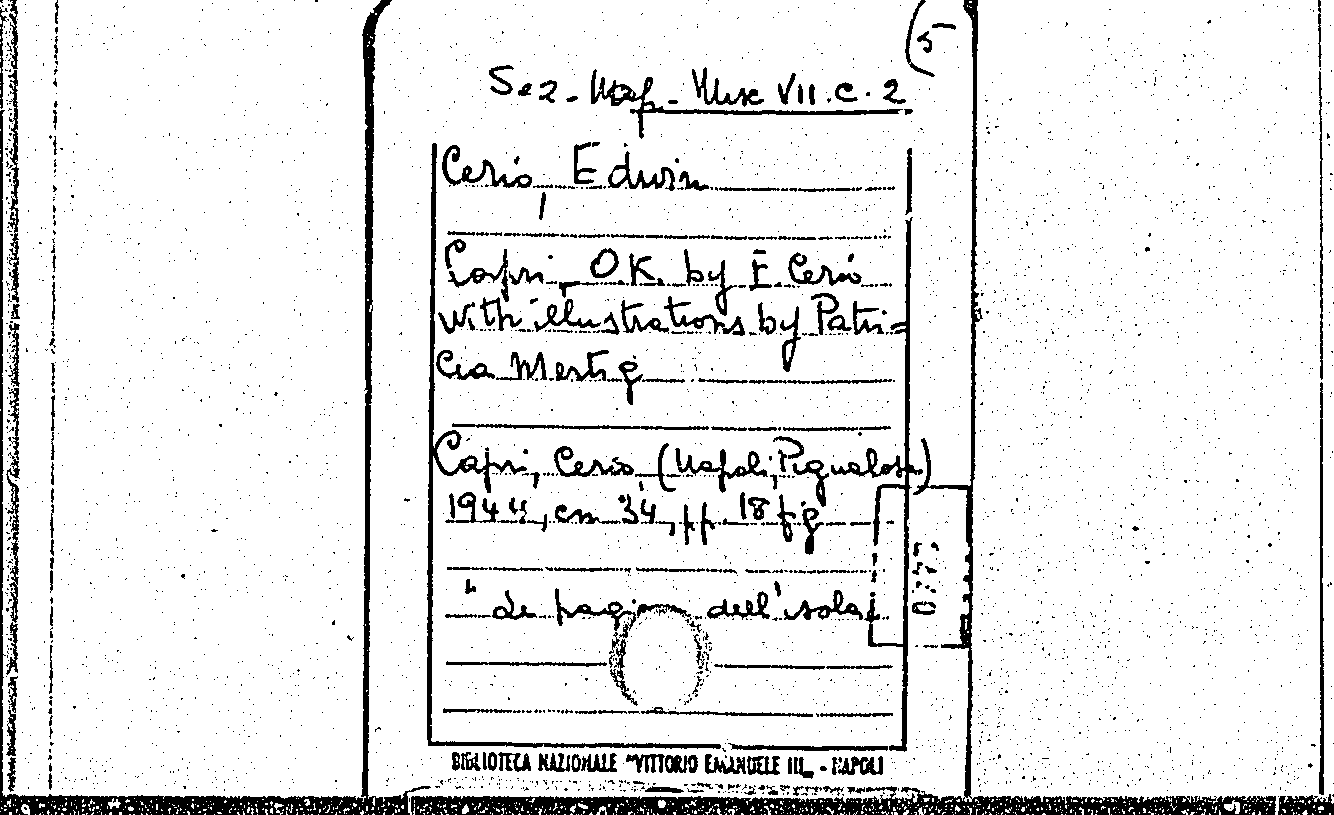 5
Sez. Nap. Misc VII.C.2
Cerio, Edwin
Capri, O.K. by E. Cerio
with illustrations by Patri=
cia
Capri, Cerio, (Napoli, Pignalosa)
1944, cm 34, pp. 18 fig
"Le pagine dell'isola"
BIBLIOTECA NAZIONALE "VITTORIO EMANUELE III" - NAPOLI